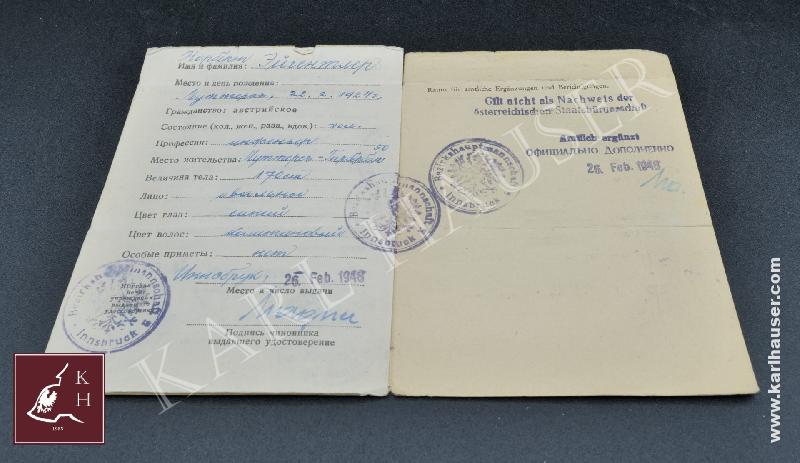 Норберт
Имя и фамилия: Эйгентлер
Место и день рождения:
22. 2. 1924 г.
Гражданство: австрийское
Состояние (хол., жен., разв., вдов.)
Профессия: инженер
Место жительства:
50
Величина тела: 176 cm
Лицо: овальное
Цвет глаз: синий
Цвет волос:
Особые приметы: нет
Иннсбрук, 26. Feb. 1948
Место и число выдачи
Подпись чиновника
выдавшего удостоверение
Bezirkshauptmannschaft
Innsbruck
Bezirkshauptmannschaft
Innsbruck
Raum für amtliche Ergänzungen und Berichtigungen.
Gilt nicht als Nachweis der
österreichischen Staatsbürgerschaft
Amtlich ergänzt
Официально Дополнено
26. Feb. 1948
Bezirkshauptmannschaft
Innsbruck
KARL HAUSER
K
H
www.karlhauser.com